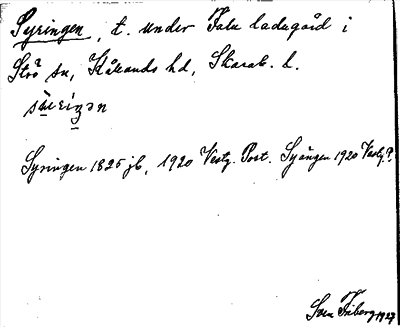 Syringen, t. under Falu ladugård i
Strö sn, Kållands hd, Skarab. l.
Syringen 1825 jb, 1920 Vestg. Post. Syången 1920 Vestg?.
Sven Friberg 1927